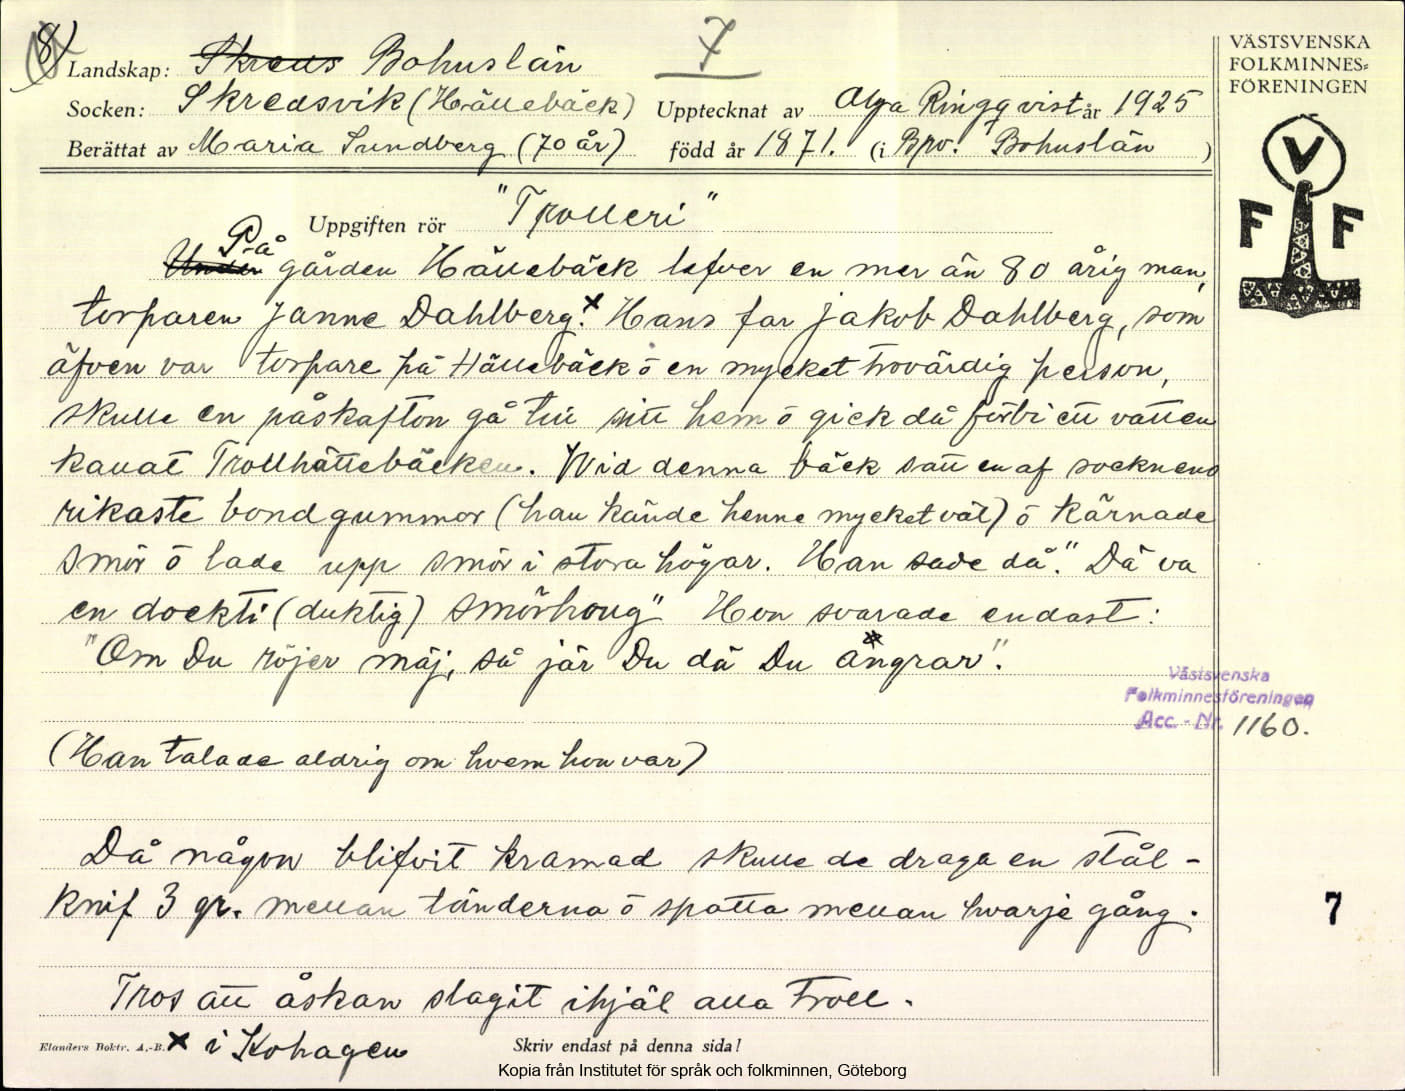 8)
7
VÄSTSVENSKA
FOLKMINNES=
FÖRENINGEN
Landskap: Skreds Bohuslän
Socken: Skredsvik (Hällebäck) Upptecknat av Olga Ringqvist år 1925
Berättat av Maria Sundberg (70 år) född år 1871. (i Bro. Bohuslän )
V F F
Uppgiften rör "Trolleri"
På
Under gården Hällebäck lefver en mer än 80 årig man,
torparen Janne Dahlberg.x Hans far Jakob Dahlberg, som
äfven var torpare på Hällebäck ö en mycket trovärdig person,
skulle en påskafton gå till sitt hem ö gick då förbi ett vatten
kallat Trollhättebäcken. Wid denna bäck satt en af socknens
rikaste bondgummor (han kände henne mycket väl) ö kärnade
smör ö lade upp smör i stora högar. Han sade då: "Dä va
en dockti (duktig) smörhoug" Hon svarade endast:
"Om Du röjer mäj, så jär Du dä Du ångrar".
Västsvenska
Folkminnesföreningen
Acc. - Nr. 1160.
(Han talade aldrig om hvem hon var)
Då någon blifvit kramad skulle de draga en stål-
knif 3 gr. mellan tänderna ö spotta mellan hvarje gång.
7
Tros att åskan slagit ihjäl alla Troll.
Elanders Boktr. A.-B. x i Kohagen Skriv endast på denna sida!
Kopia från Institutet för språk och folkminnen, Göteborg